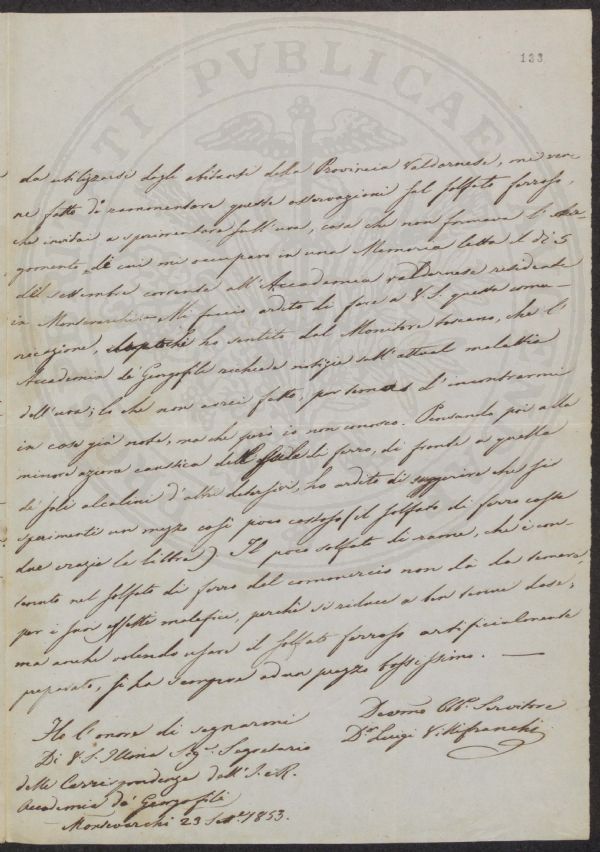 133
PROSPERITATI PVBLICAE
da utilizzarsi dagli abitanti della Provincia Valdarnese, mi ven-
ne fatto di rammentare queste osservazioni sul solfato ferroso,
che invitai a sperimentare sull'uva, cosa che non formava l'Ar-
gomento di cui mi occuparo in una Memoria letta il dì 5
del settembre corrente all'Accademia valdarnese residente
in Montevarchi. Mi faccio ardito di fare a V.S. questa comu-
nicazione, ho sentito dal Monitore toscano, che l'
Accademia de' Georgofili richiede notizie sull'attuale malattia
dell'uva; lo che non avrei fatto, per temenza d'incontrarmi
in cose già note, ma che però io non conosco. Pensando poi alla
minore azione caustica del di ferro, di fronte a quella
di sali alcalini d'altri detersivi, ho ardito di suggerire che si
sperimenti un mezzo così poco costoso (il solfato di ferro costa
due crazie la libbra) Il poco solfato di rame, che è con-
tenuto nel solfato di ferro del commercio non dà da temere
per i suoi effetti malefici, perchè si riduce a ben tenue dose;
ma anche volendo usare il solfato ferroso artificialmente
preparato, si ha sempre ad un prezzo bassissimo. —
Ho l'onore di segnarmi
Di V.S. Illma Sig. Segretario
delle Corrispondenze dell'I. e R.
Accademia de' Georgofili
Montevarchi 23 Sett. 1853.
Devmo Obb. Servitore
Dr Luigi